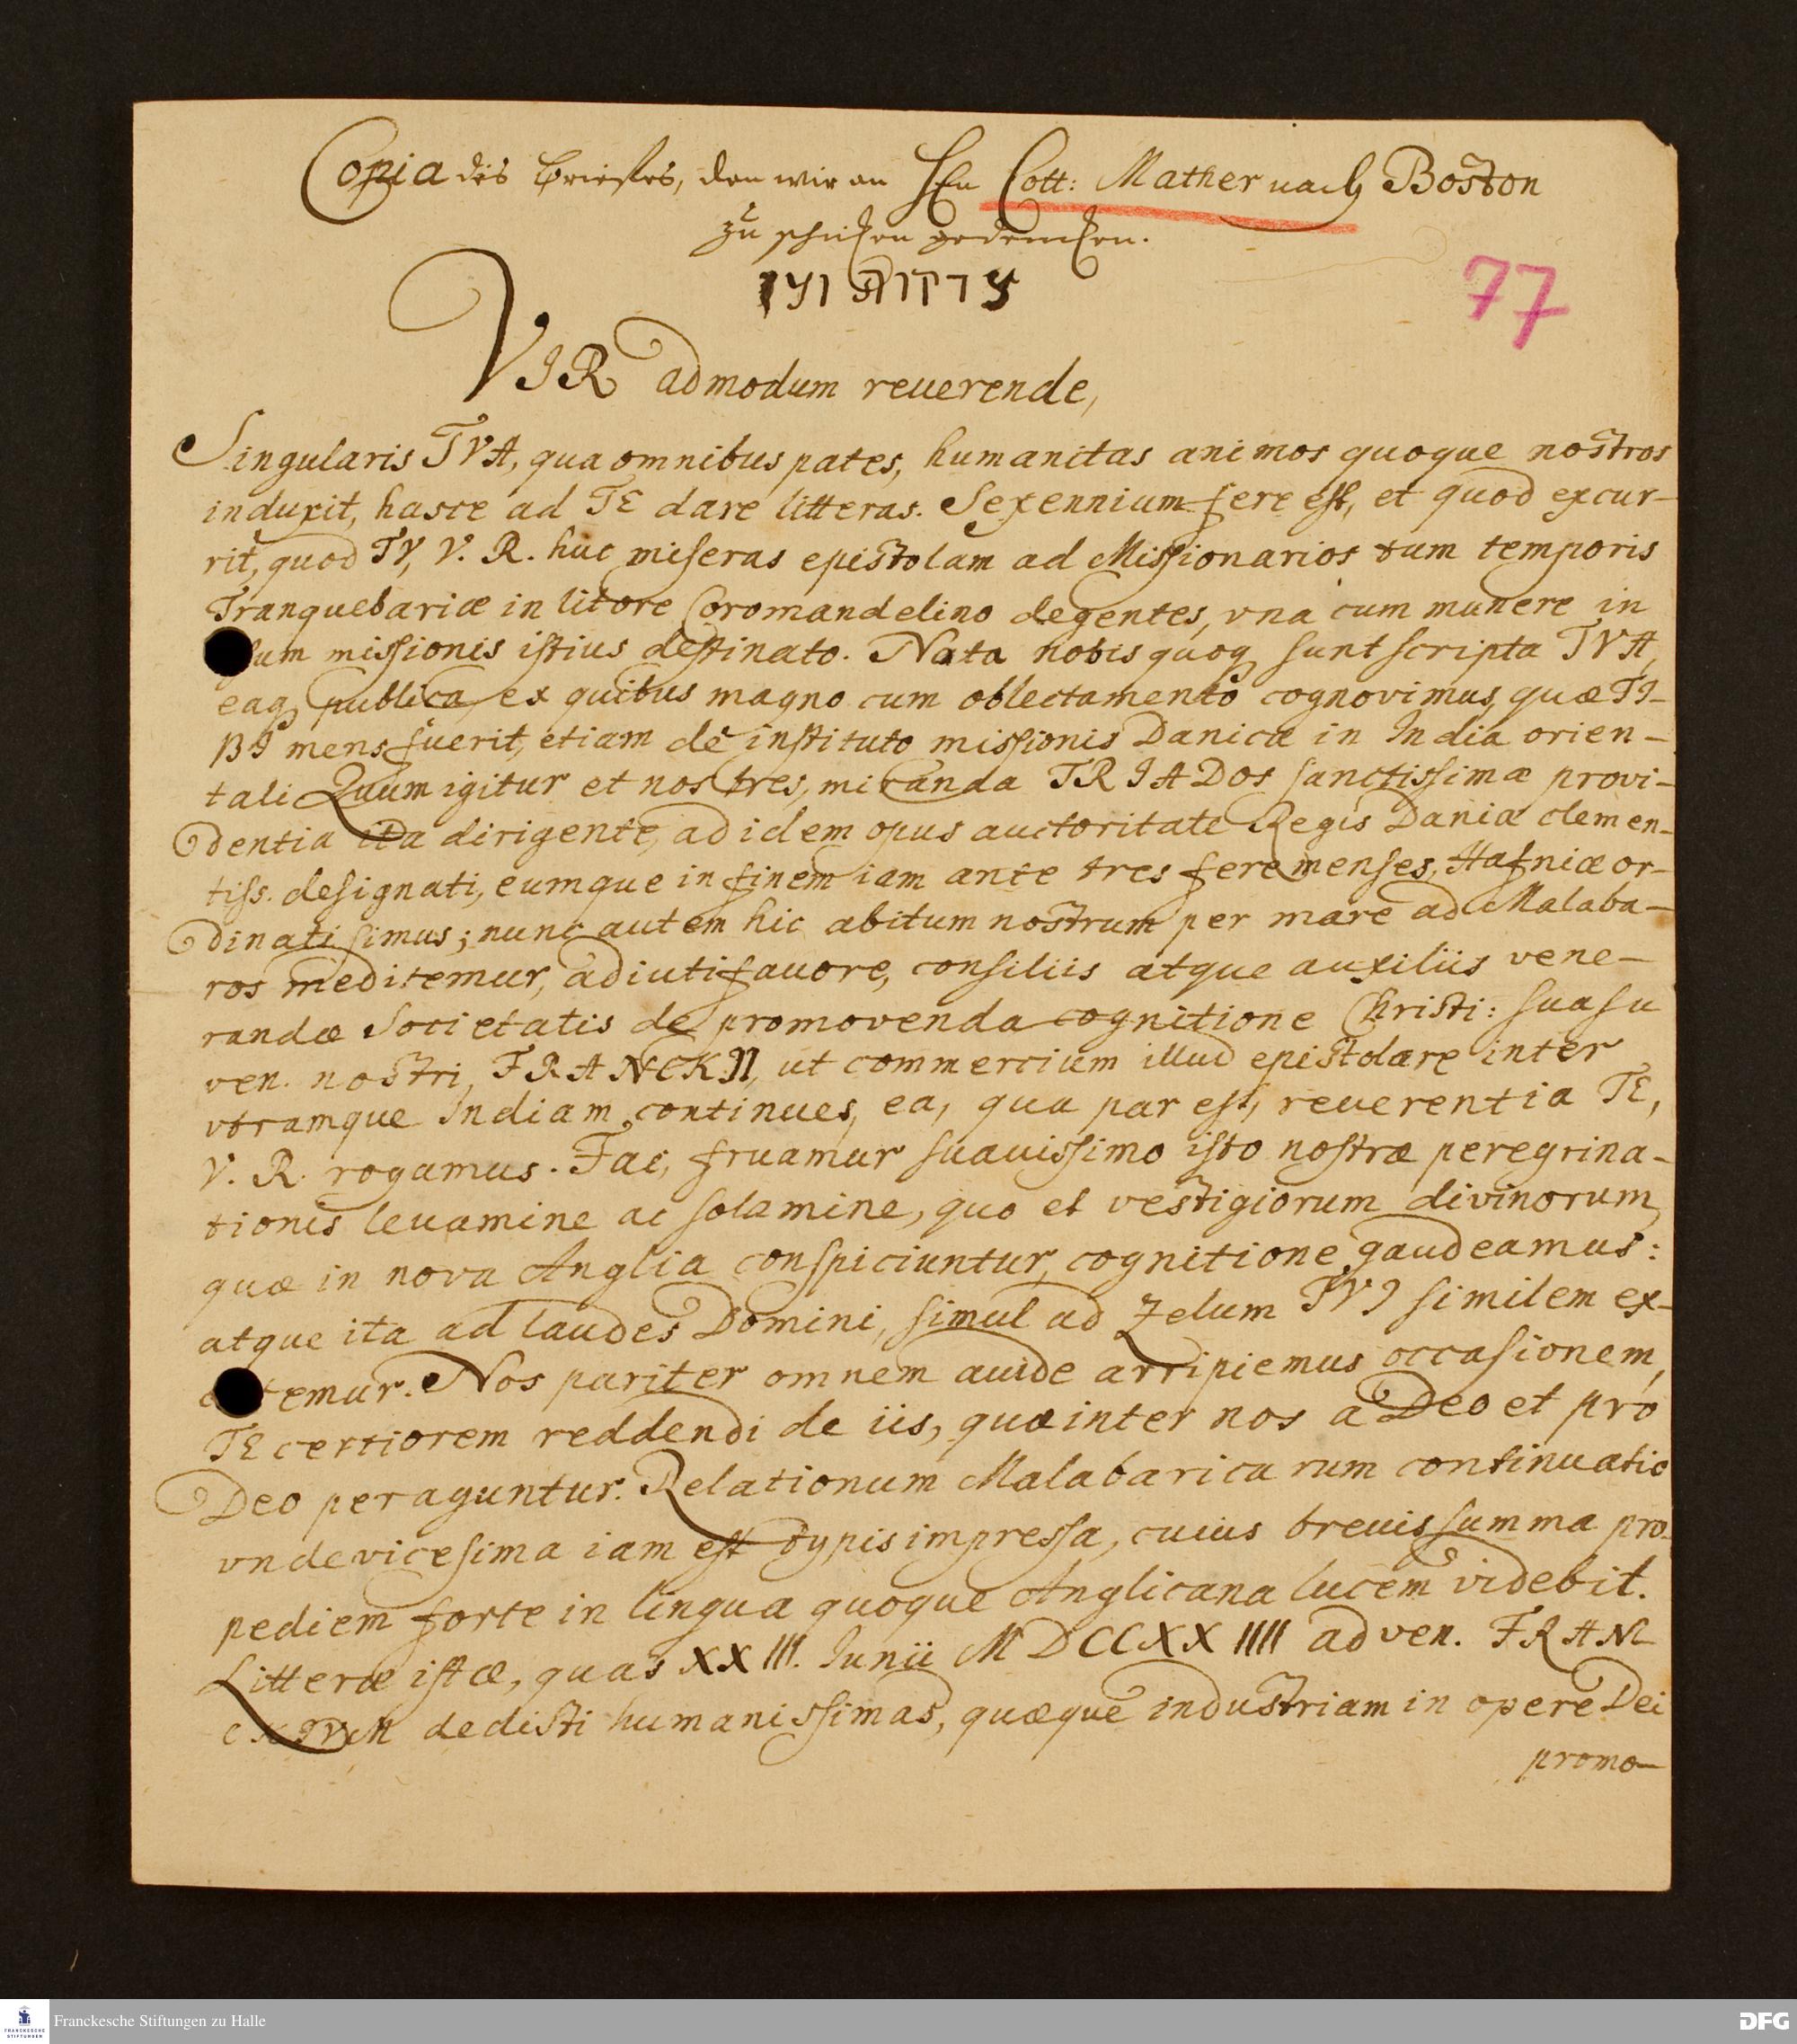 Copia des Briefes, den wir an HEn Cott: Mather nach Boston
zu schicken gedencken.
77
VIR admodum reuerende,
Singularis TVA, qua omnibus pates, humanitas animos quoque nostros
induxit, hasce ad TE dare litteras. Sexennium fere est, et quod excur-
rit, quod TV, V. R. huc miseras epistolam ad Missionarios tum temporis
Tranquebariæ in litore Coromandelino degentes, vna cum munere in
sum missionis istius destinato. Nata nobis quoq sunt scripta TVA,
eaq publica, ex quibus magno cum oblectamento cognovimus, quæ TI-
BI mens fuerit, etiam de instituto missionis Danicæ in India orien-
tali Quum igitur et nos tres, miranda TRIADos sanctissimæ provi-
dentia ita dirigente, ad idem opus auctoritate Regis Daniæ clemen-
tiss. designati, eumque in finem iam ante tres fere menses, Hafniæ or-
dinati simus; nunc autem hic abitum nostrum per mare ad Malaba-
ros meditemur, adiuti favore, consiliis atque auxiliis vene-
randæ Societatis de promovenda cognitione Christi: suasu
ven. nostri, FRANCKII, ut commercium illud epistolare inter
vtramque Indiam continues, ea, qua par est, reuerentia TE,
V. R. rogamus. Fac, fruamur suauissimo isto nostræ peregrina-
tionis leuamine ac solamine, quo et vestigiorum divinorum,
quæ in nova Anglia conspiciuntur, cognitione gaudeamus:
atque ita ad laudes Domini, simul ad zelum TVI similem ex-
temur. Nos pariter omnem auide arripiemus occasionem,
TE certiorem reddendi de iis, quæ inter nos a Deo et pro
Deo peraguntur. Relationum Malabaricarum continuatio
vndevicesima iam est typis impressa, cuius breuis summa pro-
pediem forte in lingua quoque Anglicana lucem videbit.
Litteræ istæ, quas XXIII. Iunii MDCCXXIIII ad ven. FRAN-
CKIVM dedisti humanissimas, quæque industriam in opere Dei
promo-
Franckesche Stiftungen zu Halle
FRANCKESCHE
STIFTUNGEN
DFG